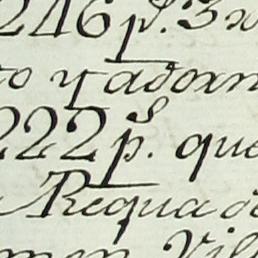 246 p.s 3
to y adorn
222 p.s que
Requa de
men Vil